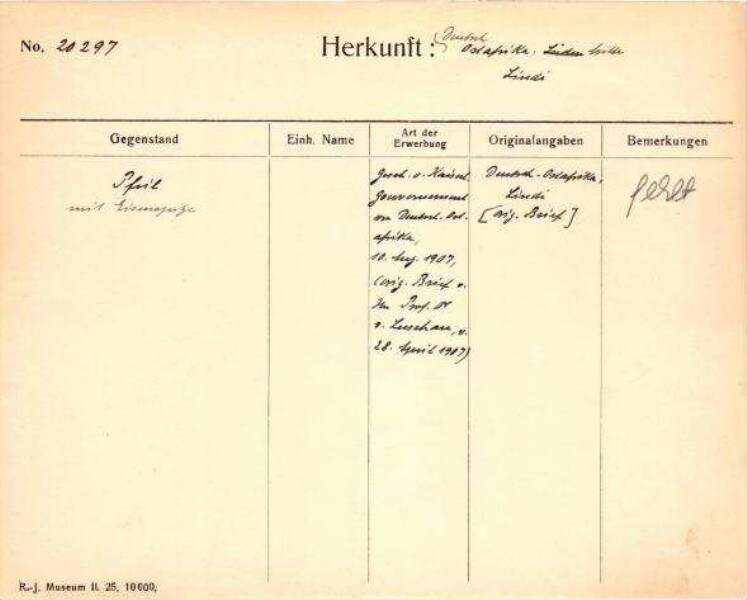 No. 20297
Herkunft : Deutsch
Ostafrika,
Lindi
Gegenstand
Einh. Name
Art der Erwerbung
Originalangaben
Bemerkungen
Pfeil
mit Eisenspitze
Gesch. v. Kaiserl.
Gouvernement
von Deutsch-Ost-
afrika,
10. Aug. 1907,
(orig. Brief v.
Hn Prof. Dr
v. Luschan, v.
28. April 1907)
Deutsch-Ostafrika,
Lindi
[orig. Brief]
fehlt
R.-J. Museum II. 25, 10000;